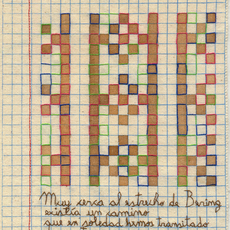 Muy cerca al estrecho de Bering
existía un camino
que en soledad hemos transitado